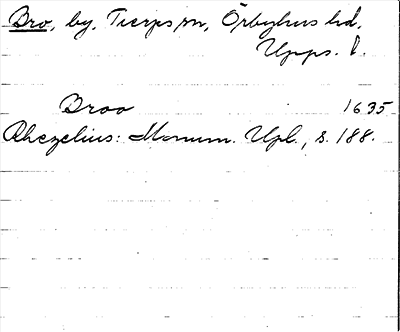 Bro, by, Tierps sn, Örbyhus hd,
Upps. l.
Broo 1635
Rhezelius: Monum. Upl., s. 188.